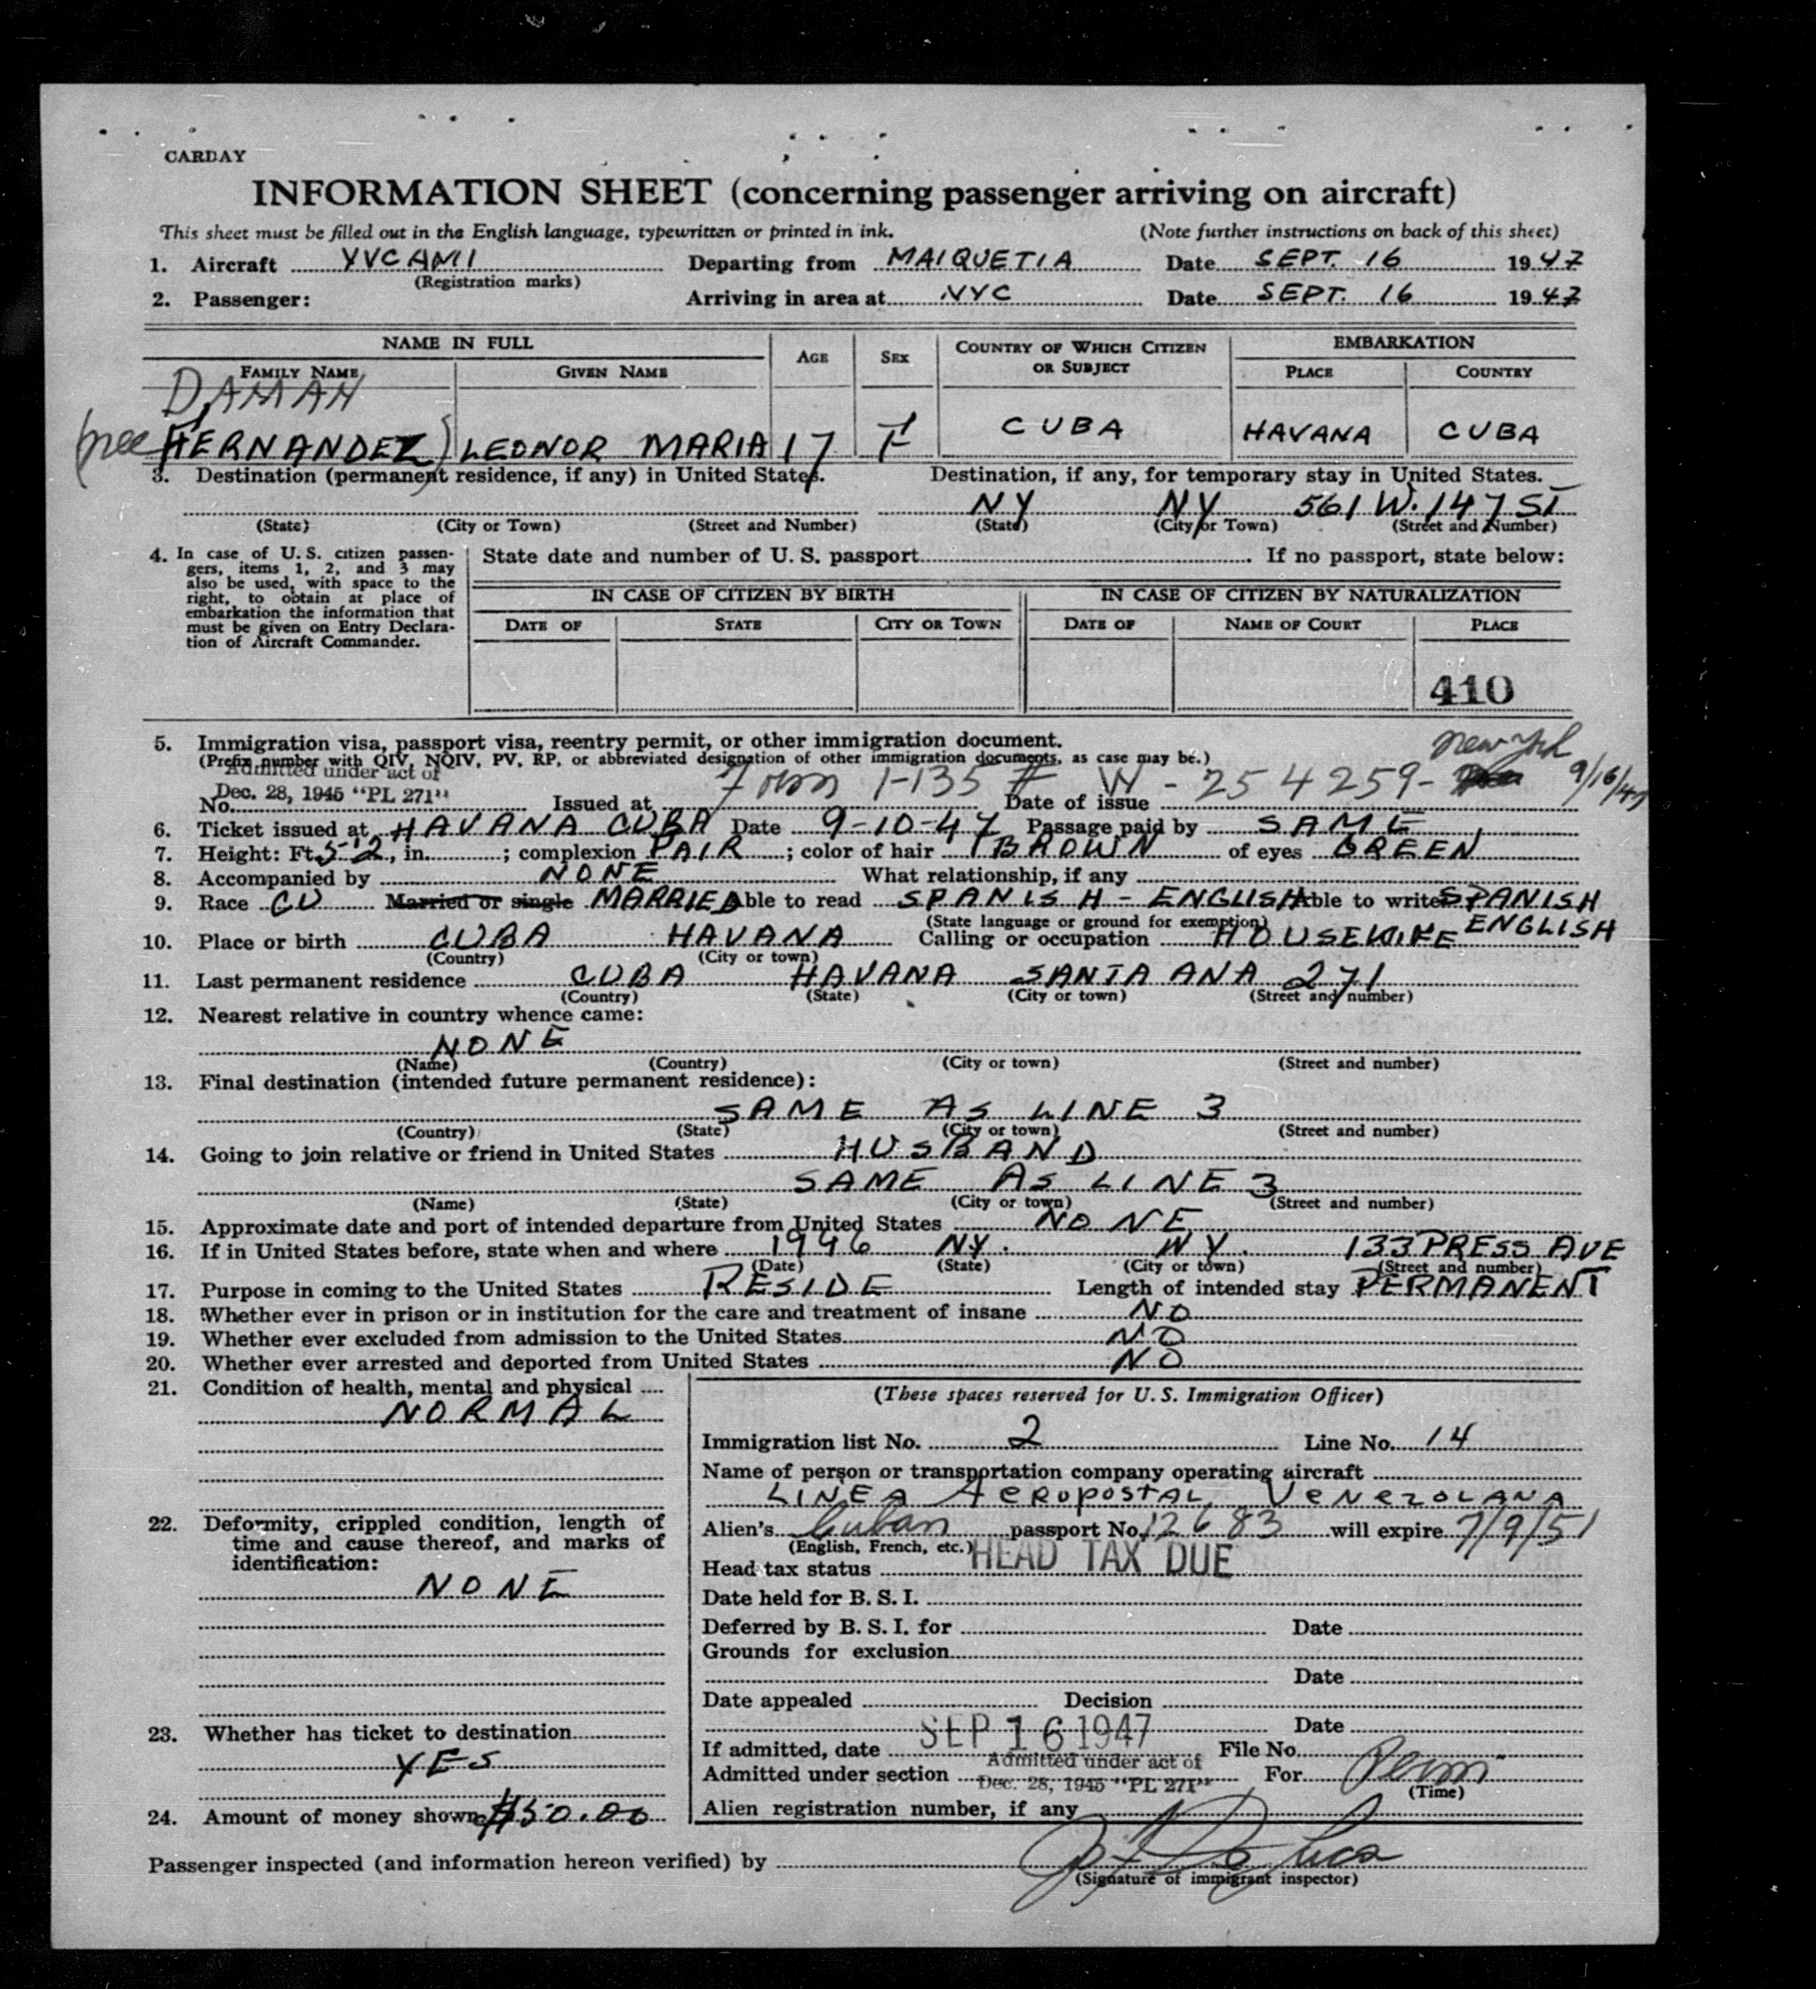 CARDAY
INFORMATION SHEET (concerning passenger arriving on aircraft)
This sheet must be filled out in the English language, typewritten or printed in ink. (Note further instructions on back of this sheet)
1. Aircraft YVCAMI Departing from MAIQUETIA Date SEPT. 16 1947
(Registration marks)
2. Passenger: Arriving in area at NYC Date SEPT. 16 1947
NAME IN FULL AGE SEX COUNTRY OF WHICH CITIZEN OR SUBJECT EMBARKATION
FAMILY NAME GIVEN NAME PLACE COUNTRY
DAMAN
(nee HERNANDEZ) LEONOR MARIA 17 F CUBA HAVANA CUBA
3. Destination (permanent residence, if any) in United States. Destination, if any, for temporary stay in United States.
NY NY 561 W. 147 ST
(State) (City or Town) (Street and Number) (State) (City or Town) (Street and Number)
4. In case of U. S. citizen passen- State date and number of U. S. passport If no passport, state below:
gers, items 1, 2, and 3 may
also be used, with space to the
right, to obtain at place of IN CASE OF CITIZEN BY BIRTH IN CASE OF CITIZEN BY NATURALIZATION
embarkation the information that
must be given on Entry Declara- DATE OF STATE CITY OR TOWN DATE OF NAME OF COURT PLACE
tion of Aircraft Commander.
410
5. Immigration visa, passport visa, reentry permit, or other immigration document. New York
(Prefix number with QIV, NQIV, PV, RP, or abbreviated designation of other immigration documents, as case may be.)
Admitted under act of
Dec. 28, 1945 "PL 271" Form I-135 # W - 254259 - 9/16/47
No. Issued at Date of issue
6. Ticket issued at HAVANA CUBA Date 9-10-47 Passage paid by SAME
7. Height: Ft. 5-2, in. ; complexion FAIR ; color of hair BROWN of eyes GREEN
8. Accompanied by NONE What relationship, if any
9. Race CU Married or single MARRIED Able to read SPANISH - ENGLISH Able to write SPANISH
(State language or ground for exemption) ENGLISH
10. Place or birth CUBA HAVANA Calling or occupation HOUSEWIFE
(Country) (City or town)
11. Last permanent residence CUBA HAVANA SANTA ANA 271
(Country) (State) (City or town) (Street and number)
12. Nearest relative in country whence came:
NONE
(Name) (Country) (City or town) (Street and number)
13. Final destination (intended future permanent residence):
SAME AS LINE 3
(Country) (State) (City or town) (Street and number)
14. Going to join relative or friend in United States HUSBAND
SAME AS LINE 3
(Name) (State) (City or town) (Street and number)
15. Approximate date and port of intended departure from United States NONE
16. If in United States before, state when and where 1946 NY. NY. 133 PRESS AVE
(Date) (State) (City or town) (Street and number)
17. Purpose in coming to the United States RESIDE Length of intended stay PERMANENT
18. Whether ever in prison or in institution for the care and treatment of insane NO
19. Whether ever excluded from admission to the United States NO
20. Whether ever arrested and deported from United States NO
21. Condition of health, mental and physical
NORMAL
(These spaces reserved for U. S. Immigration Officer)
Immigration list No. 2 Line No. 14
Name of person or transportation company operating aircraft
LINEA AEROPOSTAL VENEZOLANA
22. Deformity, crippled condition, length of
time and cause thereof, and marks of
identification:
NONE
Alien's Cuban passport No. 12683 will expire 7/9/51
(English, French, etc.)
Head tax status HEAD TAX DUE
Date held for B. S. I.
Deferred by B. S. I. for Date
Grounds for exclusion
Date
Date appealed Decision
23. Whether has ticket to destination
YES
Date
If admitted, date SEP 16 1947 File No.
Admitted under section Admitted under act of Dec. 28, 1945 "PL 271" For Perm
(Time)
24. Amount of money shown $50.00
Alien registration number, if any
Passenger inspected (and information hereon verified) by
(Signature of immigrant inspector)